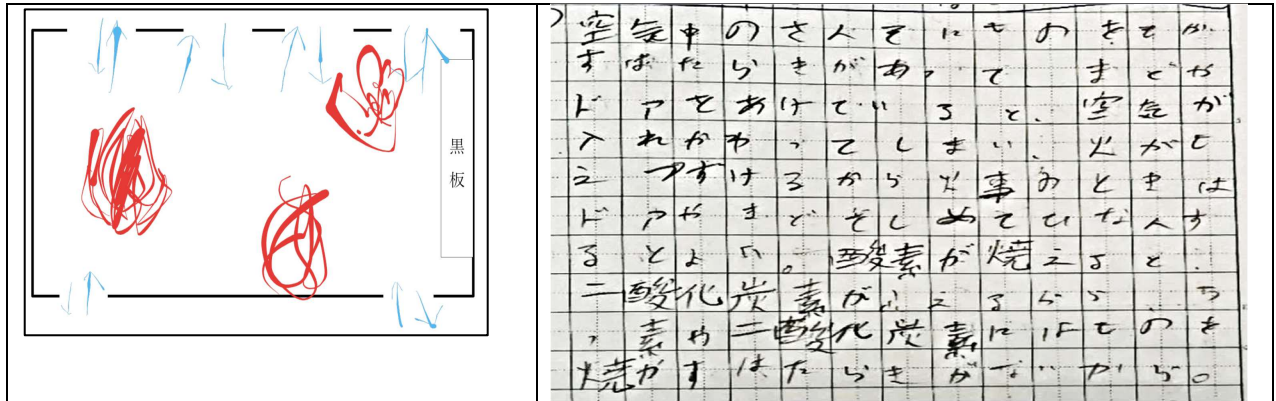 黒板
空気中のさんそにものをもか
すはたらきがあって まどや
ドアをあけていると、空気が
入れかわってしまい、火がも
えつずけるから火事のときは
ドアやまどをしめてひなんす
るとよい。酸素が焼えると、
二酸化炭素がふえるから、ち
っ素や二酸化炭素にはものを
焼かすはたらきがないから。